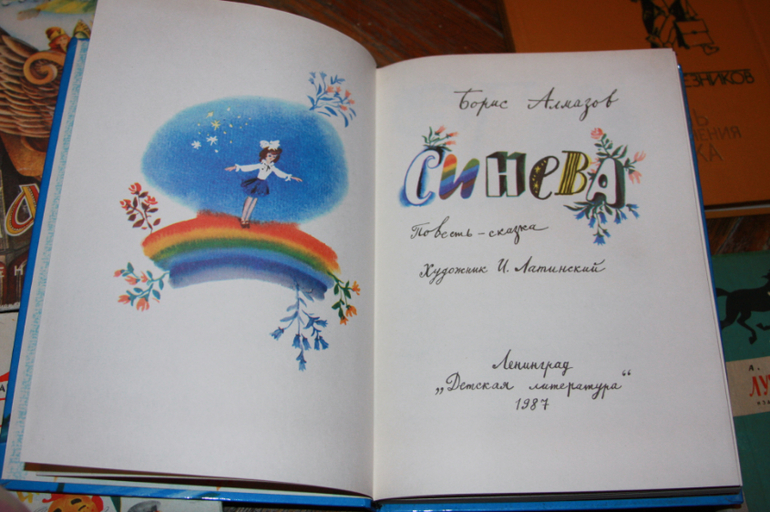 Борис Алмазов
СИНЕВА
Повесть-сказка
Художник И. Латинский
Ленинград
„Детская литература“
1987